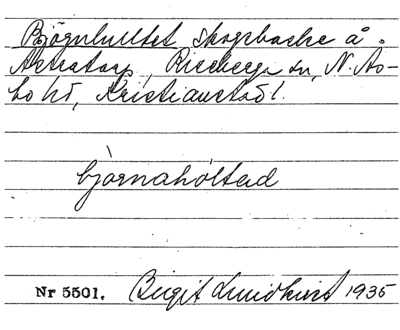 Björnhultet skogsbacke å
Axtatorp, Riseberga sn, N. Ås-
bo hd, Kristianstad l.
bjørnahòltəd
Nr 5501. Birgit Lundkvist 1935